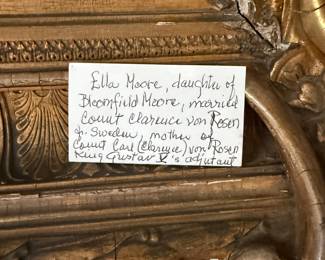 Ella Moore, daughter of
Bloomfield Moore, married
Count Clarence von Rosen
of Sweden, mother of
Count Carl (Clarence) von Rosen
King Gustav V's adjutant